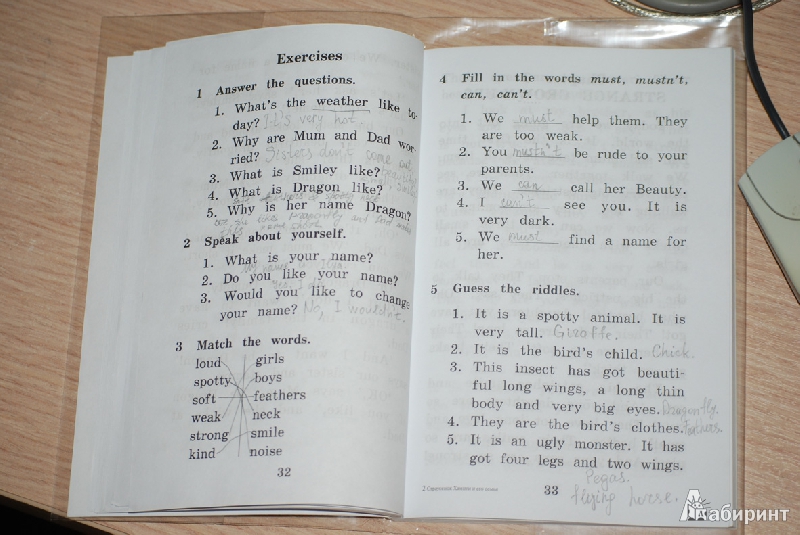 Exercises
1 Answer the questions.
1. What's the weather like to-
day? It's very hot.
2. Why are Mum and Dad wor-
ried? Sisters don't come out
3. What is Smiley like?
4. What is Dragon like?
5. Why is her name Dragon?
2 Speak about yourself.
1. What is your name?
2. Do you like your name?
3. Would you like to change
your name? No, I wouldn't.
3 Match the words.
loud girls
spotty boys
soft feathers
weak neck
strong smile
kind noise
32
4 Fill in the words must, mustn't,
can, can't.
1. We must help them. They
are too weak.
2. You mustn't be rude to your
parents.
3. We can call her Beauty.
4. I can't see you. It is
very dark.
5. We must find a name for
her.
5 Guess the riddles.
1. It is a spotty animal. It is
very tall. Giroffe.
2. It is the bird's child. Chick.
3. This insect has got beauti-
ful long wings, a long thin
body and very big eyes. Dragonfly.
4. They are the bird's clothes. Feathers
5. It is an ugly monster. It has
got four legs and two wings.
Pegas.
flying horse.
33
Лабиринт